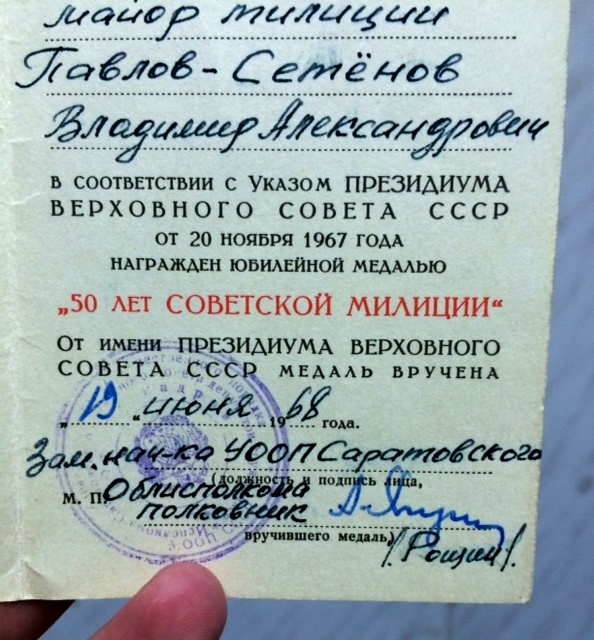 майор милиции
Павлов-Семёнов
Владимир Александрович
В СООТВЕТСТВИИ С УКАЗОМ ПРЕЗИДИУМА
ВЕРХОВНОГО СОВЕТА СССР
ОТ 20 НОЯБРЯ 1967 ГОДА
НАГРАЖДЕН ЮБИЛЕЙНОЙ МЕДАЛЬЮ
„50 ЛЕТ СОВЕТСКОЙ МИЛИЦИИ“
ОТ ИМЕНИ ПРЕЗИДИУМА ВЕРХОВНОГО
СОВЕТА СССР МЕДАЛЬ ВРУЧЕНА
„19“ июня 1968 года.
Зам. нач-ка УООП Саратовского
(должность и подпись лица,
М. П. Облисполкома
полковник
вручившего медаль)
/Рощин/.